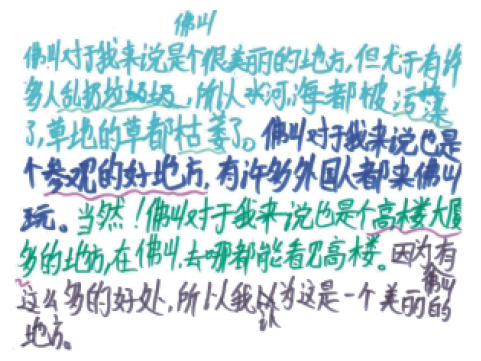 佛山
佛山对于我来说是个很美丽的地方,但尤于有许
多人乱扔垃圾,所以水河,海都被污染
了,草地的草都枯萎了。佛山对于我来说也是
个参观的好地方,有许多外国人都来佛山
玩。当然!佛山对于我来说也是个高楼大厦
多的地方,在佛山,去哪都能看见高楼。因为有
这么多的好处,所以我认为佛山这是一个美丽的
地方。